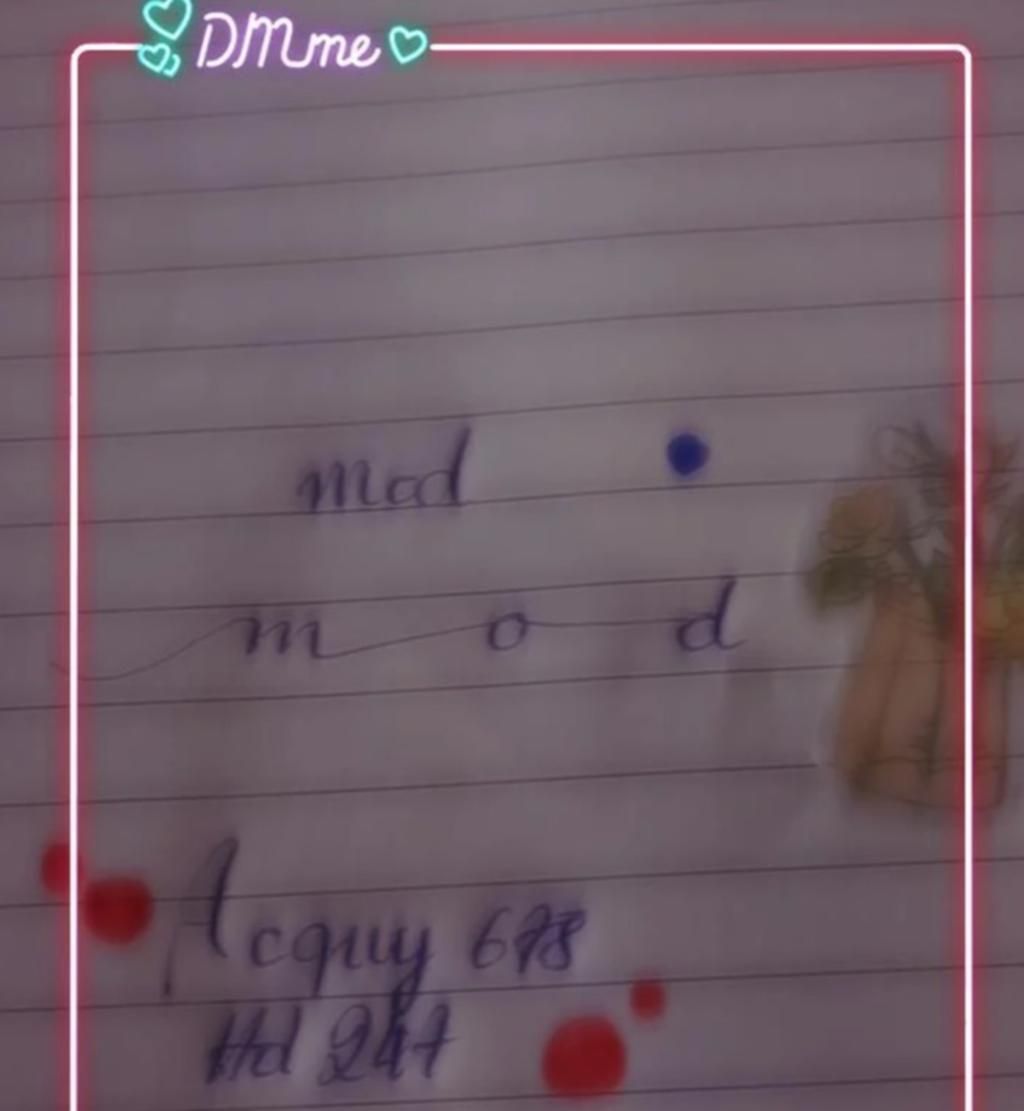 DM me
mod
m o d
Acquy 678
Hd 247